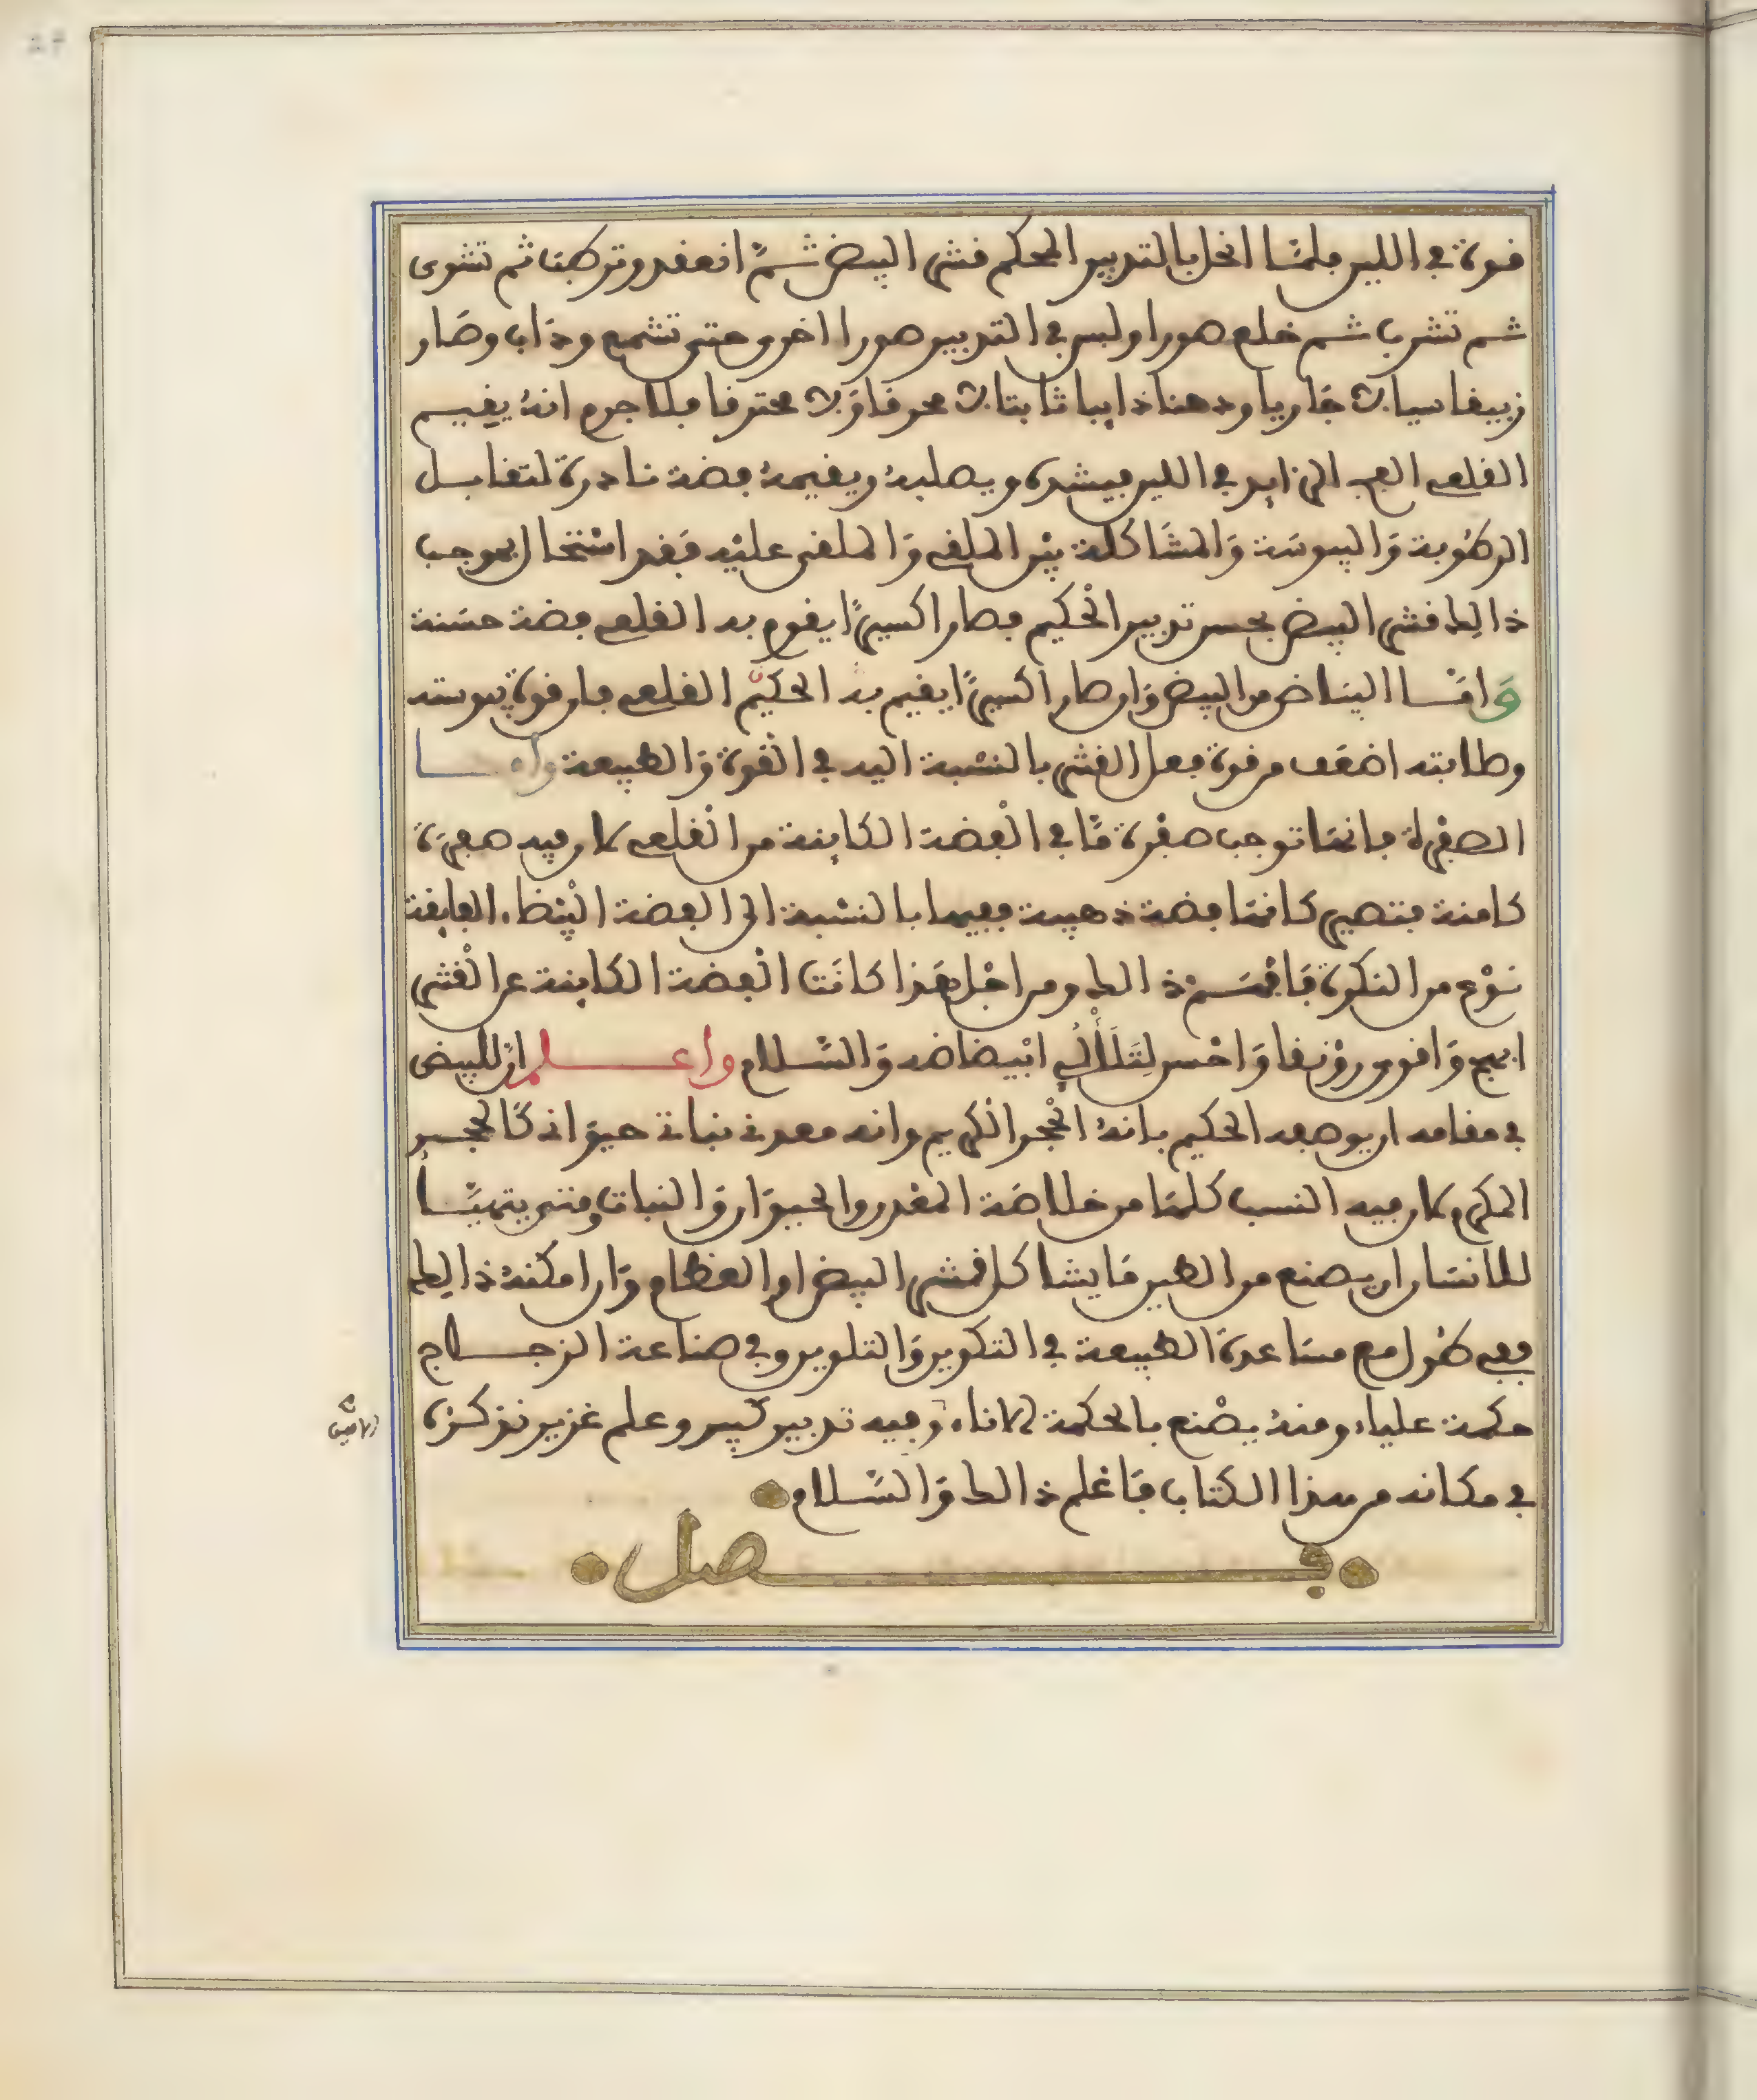 قوة في اللين فلمّا انحل بالتدبير المحكم قشر البيض ثمّ انعقد وتركب ثم تشوى
ثم تشرب ثم خلع صورا ولبس في التدبير صورا اخرى حتى تشمع وذاب وصار
زيبقا سيالا جاريا ودهنا ذايبا ثابتا لا محرقا ولا محترقا فلا جرم انه يقيم
القلعي الزايد في اللين فيشده ويصلبه ويقيمه فضة نادرة لتقابل
الرطوبة واليبوسة والمشاكلة بين الملقى والملقى عليه فقد استحال بموجب
ذالك قشر البيض بحسن تدبير الحكيم فصار اكسيرًا يقوم به القلعي فضة حسنة
وامّا البياض من البيض وان صار اكسيرًا يقيم به الحكيم القلعي فان قوة يبوسته
وصلابته اضعف من قوة فعل القشر بالنسبة اليه في القوة والطبيعة واما
الصفرة فانها توجب صفرة مّا في الفضة الكاينة من القلعي لان فيه صفرة
كامنة فتصير كانها فضة ذهبية فيها بالنسبة الى الفضة البيضاء الفايقة
نوع من النكرة فافهم ذالك ومن اجل هذا كانت الفضة الكاينة عن القشر
ابهج واقوى رونقا واحسن لتلألىء ابيضاضه والسّلام واعلم ان للبيض
في مقامه ان يوصف الحكيم بانه الحجر الكريم وانه معدني نباتي حيواني كالحجر
المكرم لان فيه النسب كلها من خلاصة المعدن والحيوان والنبات ومتى يتهيّأ
للانسان ان يصنع من الطين ما يشاكل قشر البيض او العظام وان امكنه ذالك
ففي طول مع مساعدة الطبيعة في التكوين والتلوين وفي صناعة الزجاج
حكمة علياء ومنه يصنع بالحكمة الاناء وفيه تدبير كبير وعلم غزير نذكره
في مكانه من هذا الكتاب فاعلم ذالك والسّلام
فصل